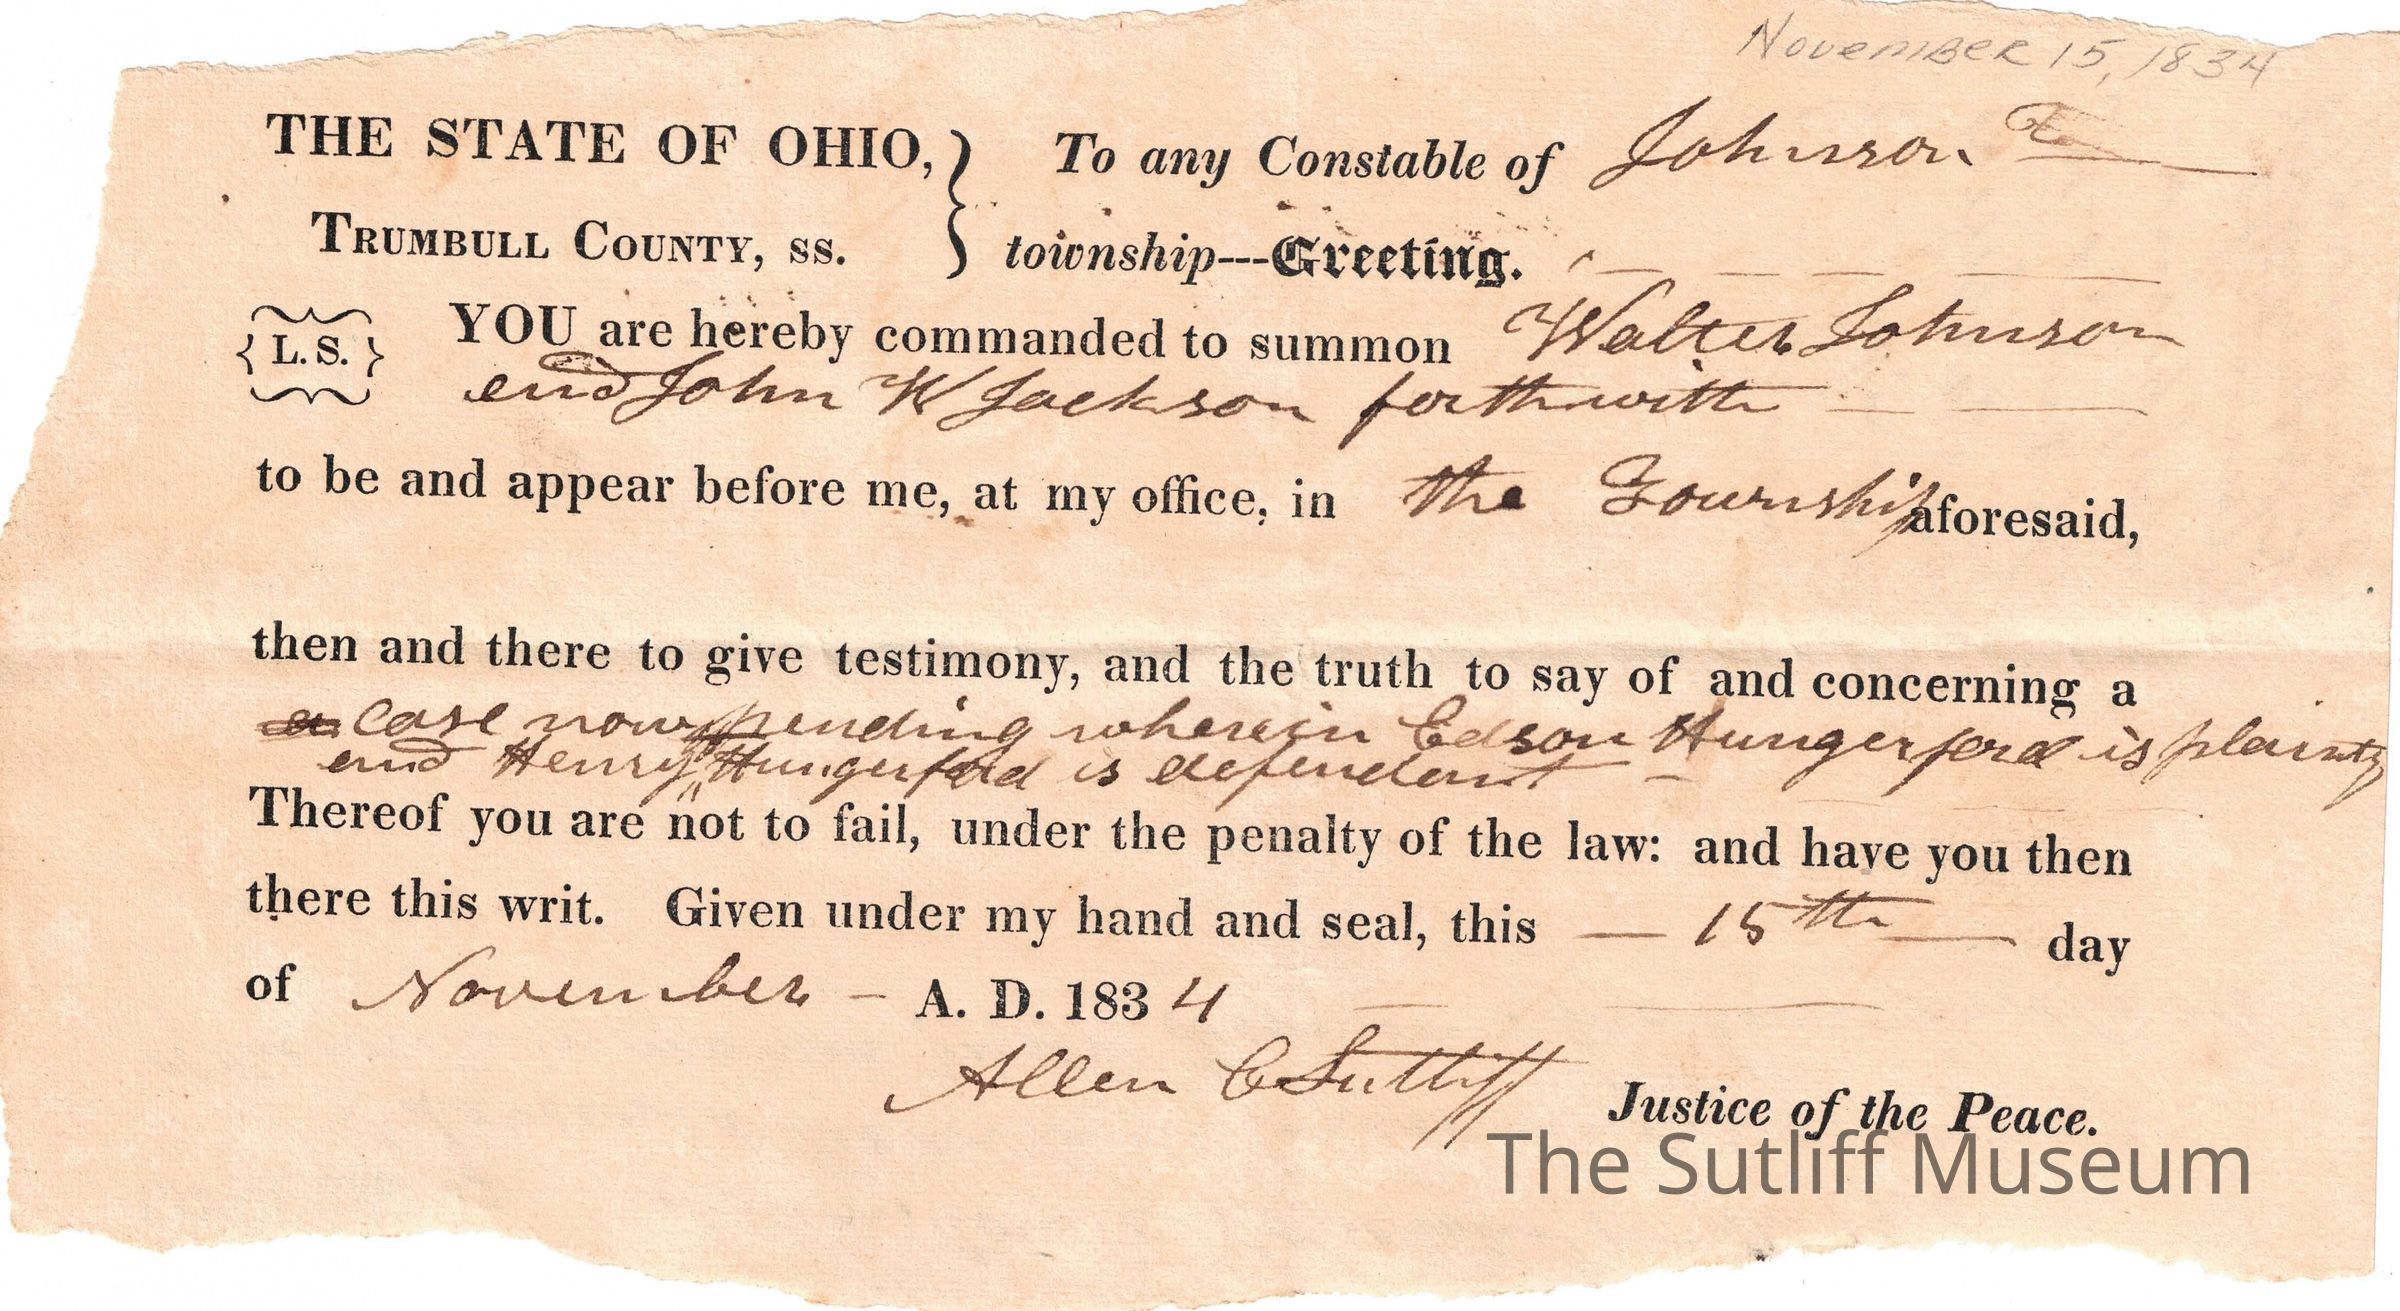 November 15, 1834
THE STATE OF OHIO, } To any Constable of Johnson
TRUMBULL COUNTY, ss. } township---Greeting.
{L.S.} YOU are hereby commanded to summon Walter Johnson
and John W Jackson forthwith
to be and appear before me, at my office, in the Township aforesaid,
then and there to give testimony, and the truth to say of and concerning a
a case now pending wherein Edson Hungerford is plaintff
and Henry Hungerford is defendant
Thereof you are not to fail, under the penalty of the law: and have you then
there this writ. Given under my hand and seal, this — 15th — day
of November - A. D. 1834
Allen C Sutliff Justice of the Peace.
The Sutliff Museum